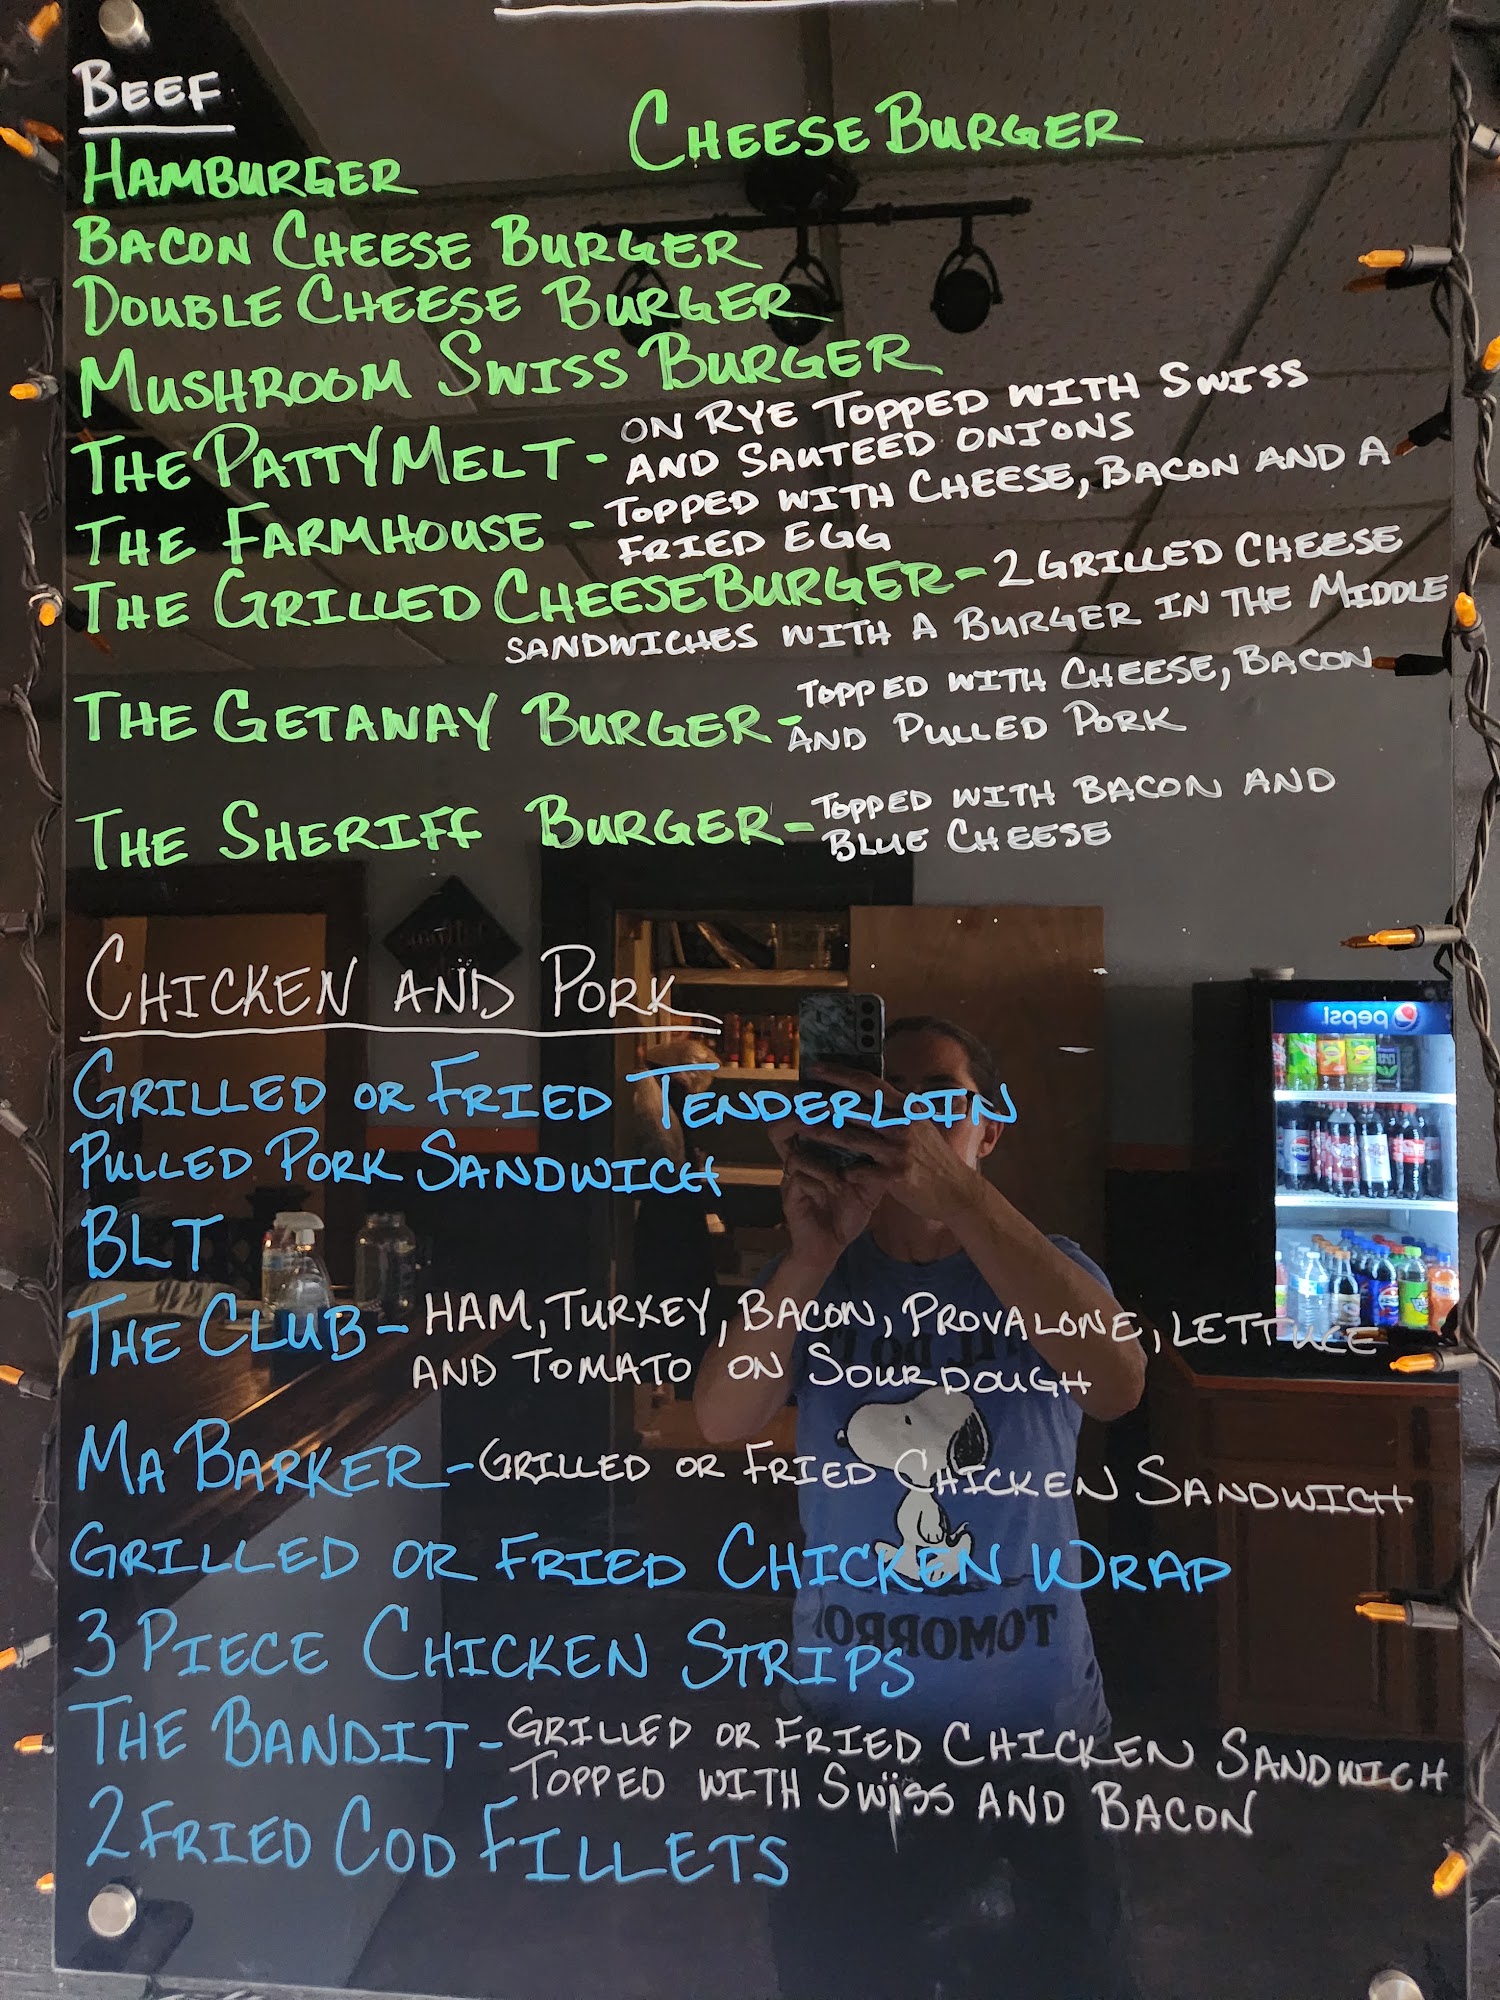 BEEF
HAMBURGER
CHEESE BURGER
BACON CHEESE BURGER
DOUBLE CHEESE BURGER
MUSHROOM SWISS BURGER
THE PATTY MELT - ON RYE TOPPED WITH SWISS
AND SAUTEED ONIONS
THE FARMHOUSE - TOPPED WITH CHEESE, BACON AND A
FRIED EGG
THE GRILLED CHEESE BURGER - 2 GRILLED CHEESE
SANDWICHES WITH A BURGER IN THE MIDDLE
THE GETAWAY BURGER - TOPPED WITH CHEESE, BACON
AND PULLED PORK
THE SHERIFF BURGER - TOPPED WITH BACON AND
BLUE CHEESE
CHICKEN AND PORK
pepsi
GRILLED OR FRIED TENDERLOIN
PULLED PORK SANDWICH
BLT
THE CLUB - HAM, TURKEY, BACON, PROVALONE, LETTUCE
AND TOMATO ON SOURDOUGH
MA BARKER - GRILLED OR FRIED CHICKEN SANDWICH
GRILLED OR FRIED CHICKEN WRAP
TOMORRO
3 PIECE CHICKEN STRIPS
THE BANDIT - GRILLED OR FRIED CHICKEN SANDWICH
TOPPED WITH SWISS AND BACON
2 FRIED COD FILLETS